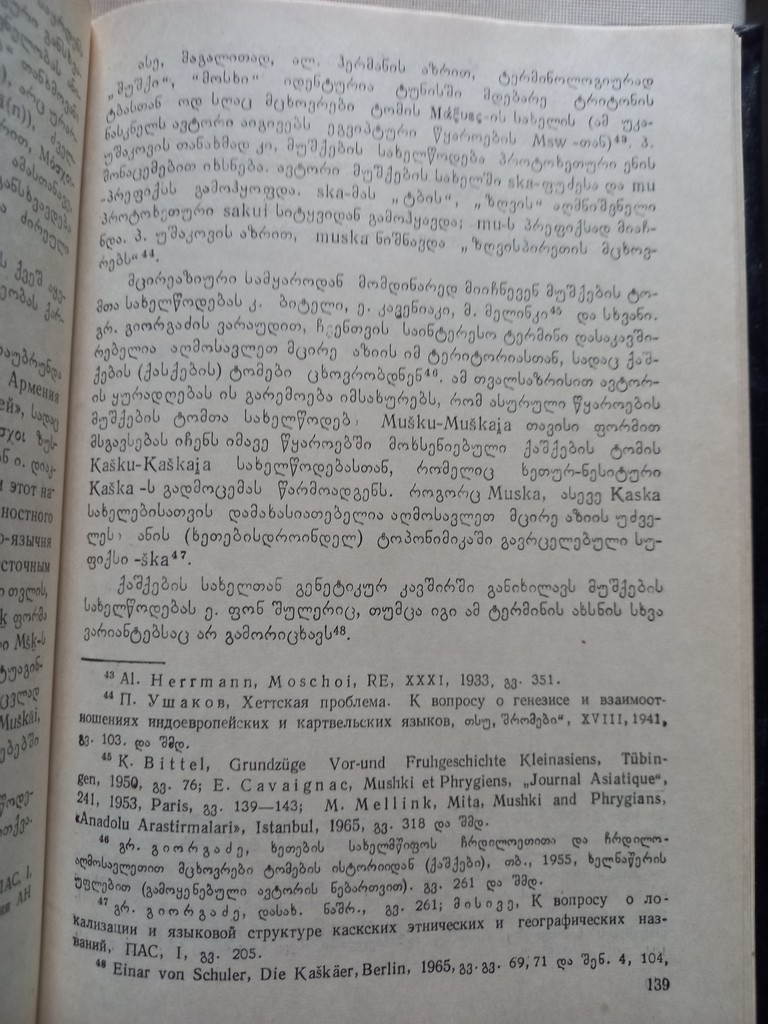 ასე, მაგალითად, ალ. ჰერმანის აზრით, ტერმინოლოგიურად
„მუშქი“, „მოსხი“ იდენტურია ტუნისში მდებარე ტრიტონის
ტბასთან ოდ სღაც მცხოვრები ტომის Μάξυες-ის სახელის (ამ უკა-
ნასკნელს ავტორი აიგივებს ეგვიპტური წყაროების Msw -თან)⁴³. პ.
უშაკოვის თანახმად კი, მუშქების სახელწოდება პროტოხეთური ენის
მონაცემებით იხსნება. ავტორი მუშქების სახელში ska-ფუძესა და mu
-პრეფიქსს გამოჰყოფდა. ska-მას „ტბის“, „ზღვის“ აღმნიშვნელი
პროტოხეთური sakui სიტყვიდან გამოჰყავდა; mu-ს პრეფიქსად მიაჩ-
ნდა. პ. უშაკოვის აზრით, muska ნიშნავდა „ზღვისპირეთის მცხოვ-
რებს“⁴⁴.
მცირეაზიური სამყაროდან მომდინარედ მიიჩნევენ მუშქების ტო-
მთა სახელწოდებას კ. ბიტელი, ე. კავენიაკი, მ. მელინკი⁴⁵ და სხვანი.
გრ. გიორგაძის ვარაუდით, ჩვენთვის საინტერესო ტერმინი დასაკავში-
რებელია აღმოსავლეთ მცირე აზიის იმ ტერიტორიასთან, სადაც ქაშ-
ქების (ქასქების) ტომები ცხოვრობდნენ⁴⁶. ამ თვალსაზრისით ავტორ-
ის ყურადღებას ის გარემოება იმსახურებს, რომ ასურული წყაროების
მუშქების ტომთა სახელწოდებ Mušku-Muškaja თავისი ფორმით
მსგავსებას იჩენს იმავე წყაროებში მოხსენიებული ქაშქების ტომის
Kašku-Kaškaja სახელწოდებასთან, რომელიც ხეთურ-ნესიტური
Kaška -ს გადმოცემას წარმოადგენს. როგორც Muska, ასევე Kaska
სახელებისათვის დამახასიათებელია აღმოსავლეთ მცირე აზიის უძვე-
ლეს ანის (ხეთებისდროინდელ) ტოპონიმიკაში გავრცელებული სუ-
ფიქსი -ška⁴⁷.
ქაშქების სახელთან გენეტიკურ კავშირში განიხილავს მუშქების
სახელწოდებას ე. ფონ შულერიც, თუმცა იგი ამ ტერმინის ახსნის სხვა
ვარიანტებსაც არ გამორიცხავს⁴⁸.
⁴³ Al. Herrmann, Moschoi, RE, XXXI, 1933, გვ. 351.
⁴⁴ П. Ушаков, Хеттская проблема. К вопросу о генезисе и взаимоот-
ношениях индоевропейских и картвельских языков, თსუ, შრომები“, XVIII, 1941,
გვ. 103. და შმდ.
⁴⁵ K. Bittel, Grundzüge Vor-und Fruhgeschichte Kleinasiens, Tübin-
gen, 1950, გვ. 76; E. Cavaignac, Mushki et Phrygiens, „Journal Asiatique“,
241, 1953, Paris, გვ. 139—143; M. Mellink, Mita, Mushki and Phrygians,
«Anadolu Arastirmalari», Istanbul, 1965, გვ. 318 და შმდ.
⁴⁶ გრ. გიორგაძე, ხეთების სახელმწიფოს ჩრდილოეთითა და ჩრდილო-
აღმოსავლეთით მცხოვრები ტომების ისტორიიდან (ქაშქები), თბ., 1955, ხელნაწერის
უფლებით (გამოყენებული ავტორის ნებართვით). გვ. 261 და შმდ.
⁴⁷ გრ. გიორგაძე, დასახ. ნაშრ., გვ. 261; მისივე, К вопросу о ло-
кализации и языковой структуре каскских этнических и географических наз-
ваний, ПАС, I, გვ. 205.
⁴⁸ Einar von Schuler, Die Kaškäer, Berlin, 1965, გვ. გვ. 69, 71 და შენ. 4, 104,
139